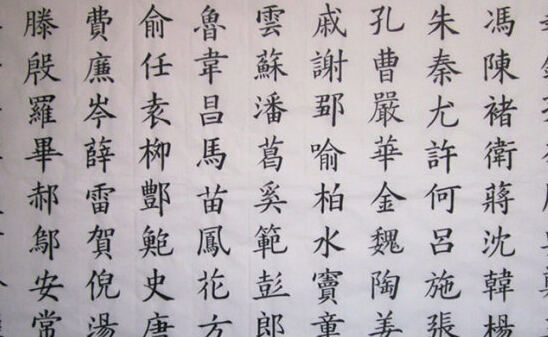 馮陳褚衛蔣沈韓楊
朱秦尤許何呂施張
孔曹嚴華金魏陶姜
戚謝鄒喻柏水竇章
雲蘇潘葛奚範彭郎
魯韋昌馬苗鳳花方
俞任袁柳酆鮑史唐
費廉岑薛雷賀倪湯
滕殷羅畢郝鄔安常